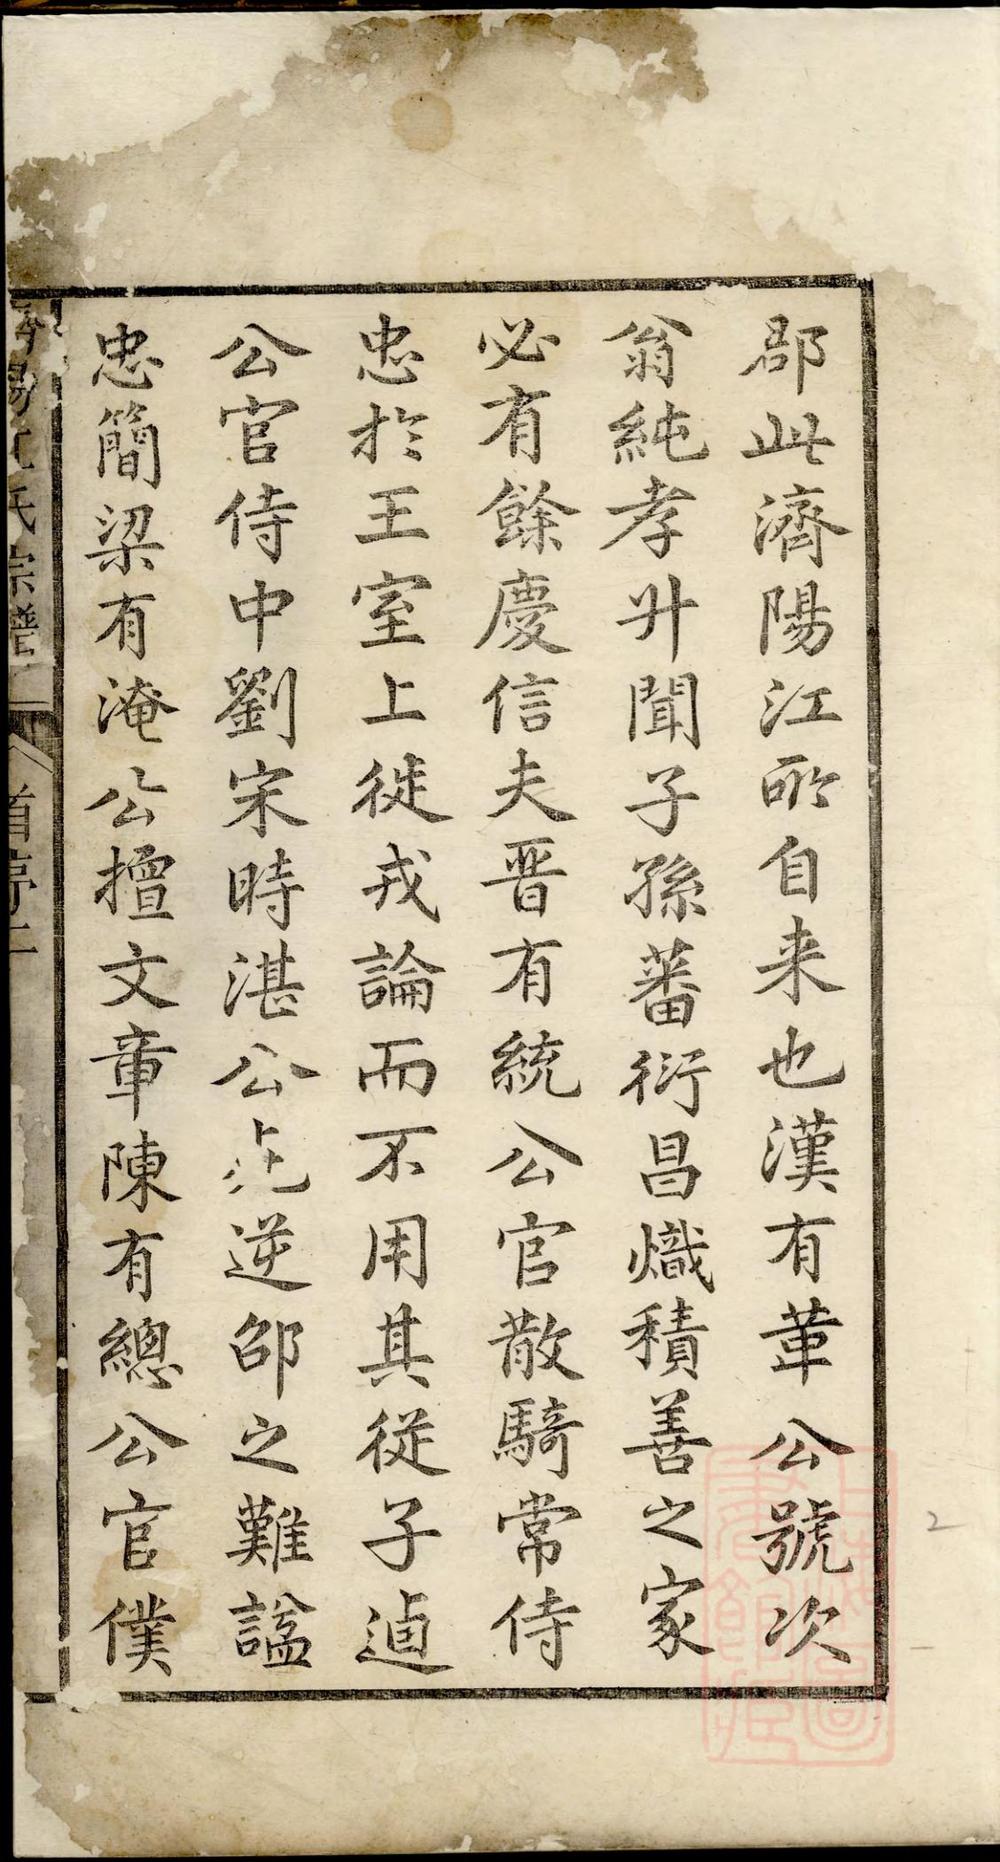 郡此濟陽江所自来也漢有革公號次
翁純孝升聞子孫蕃衍昌熾積善之家
必有餘慶信夫晋有統公官散騎常侍
忠於王室上徙戎論而不用其從子逌
公官侍中劉宋時湛公死逆邵之難諡
忠簡梁有淹公擅文章陳有總公官僕
濟陽江氏宗譜
首序二
2